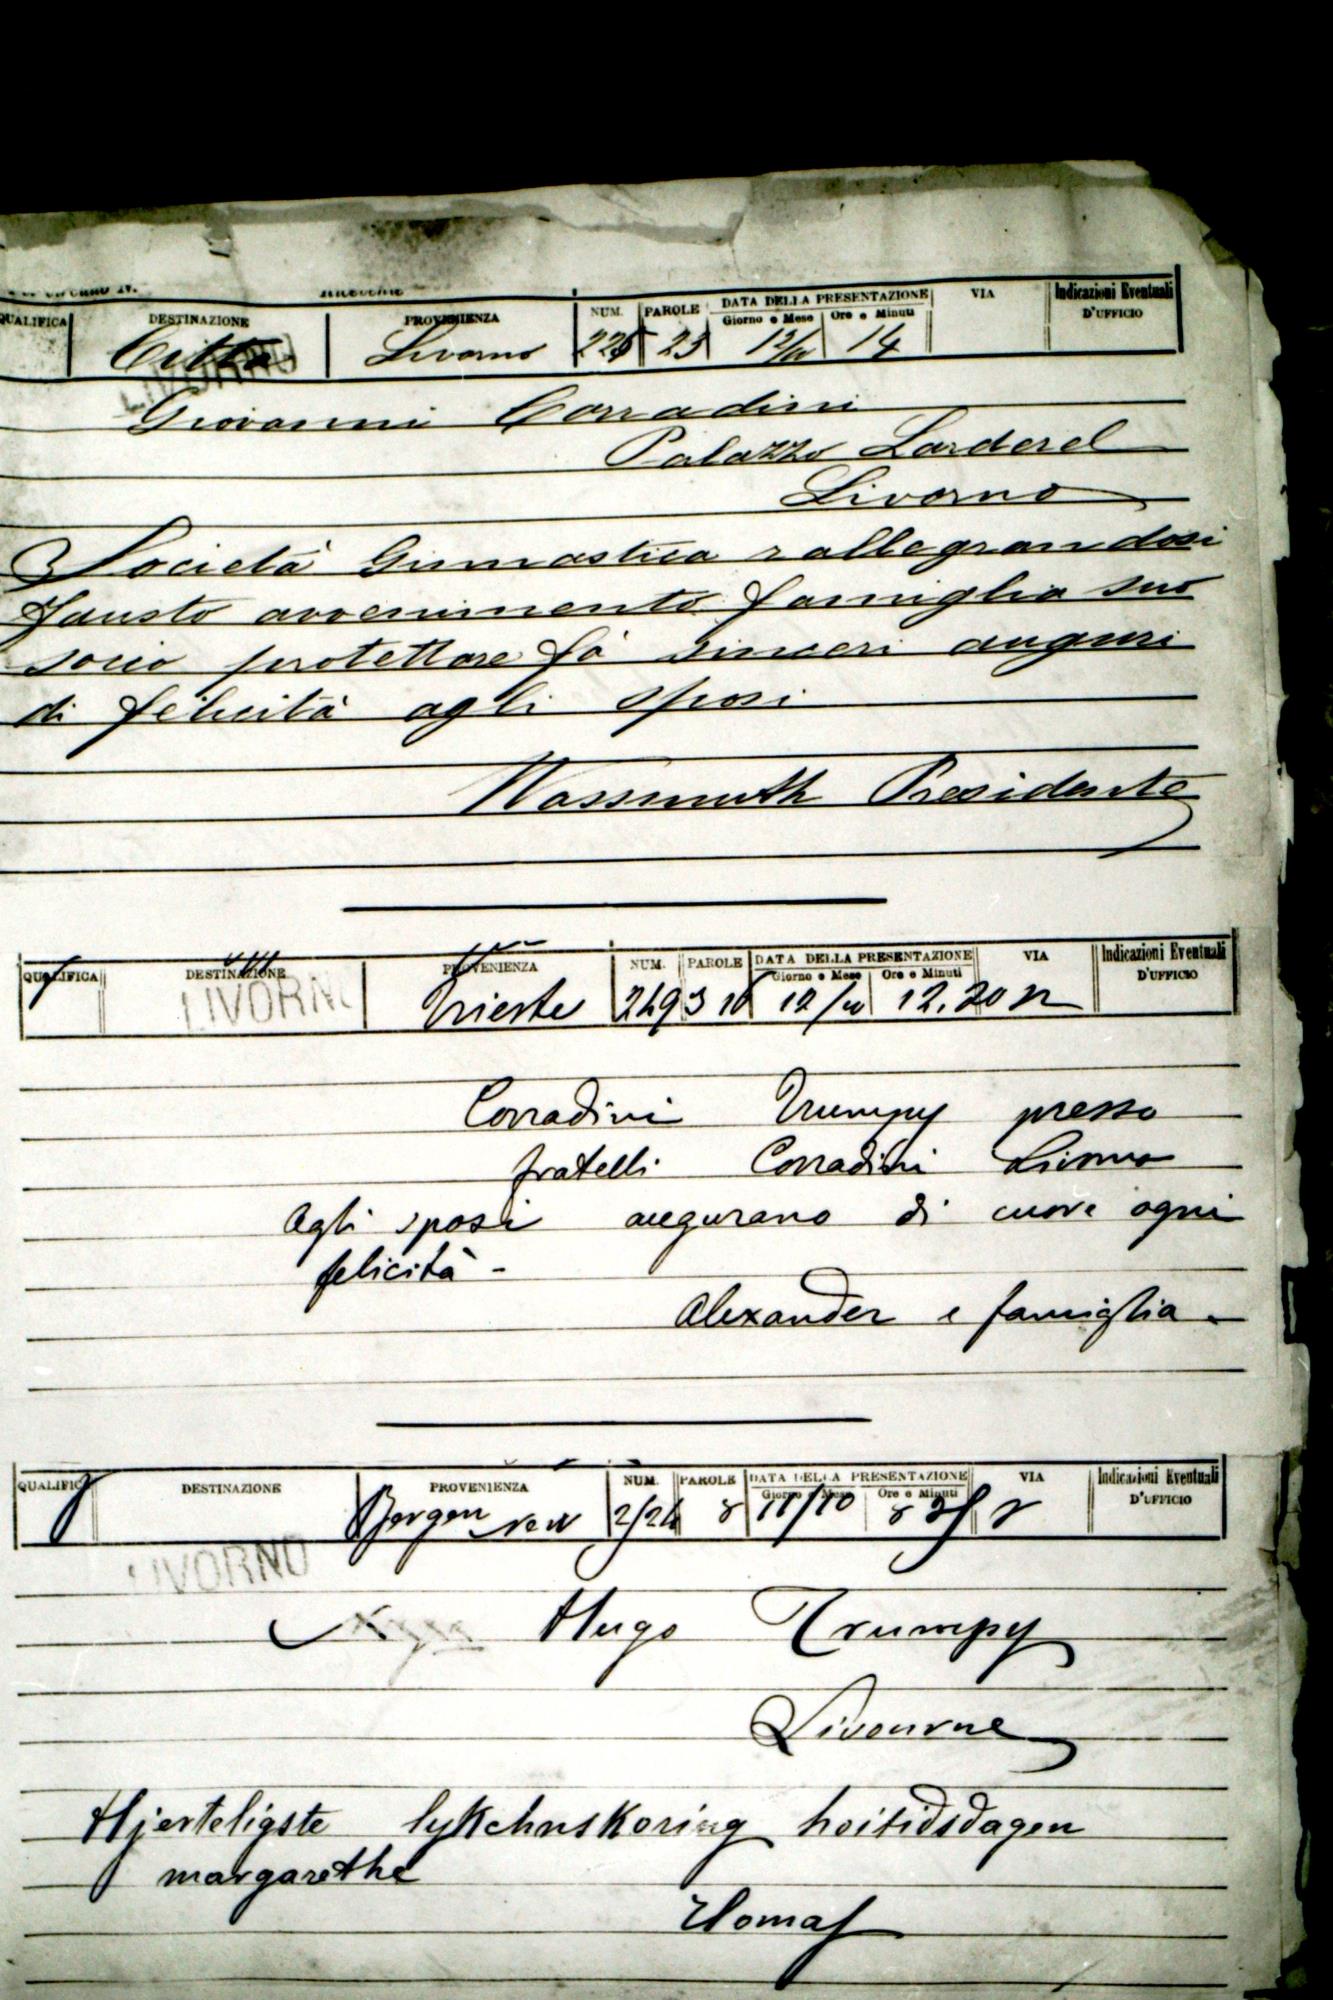 QUALIFICA DESTINAZIONE PROVENIENZA NUM. PAROLE DATA DELLA PRESENTAZIONE Giorno e Mese Ore e Minuti VIA Indicazioni Eventuali D'UFFICIO
Città Livorno 225 23 12/10 14
LIVORNO
Giovanni Corradini
Palazzo Larderel
Livorno
Società Ginnastica rallegrandosi
fausto avvenimento famiglia suo
socio protettore fà sinceri auguri
di felicità agli sposi
Wassmuth Presidente
QUALIFICA DESTINAZIONE PROVENIENZA NUM. PAROLE DATA DELLA PRESENTAZIONE Giorno e Mese Ore e Minuti VIA Indicazioni Eventuali D'UFFICIO
LIVORNO Trieste 2493 16 12/10 12.20
Corradini Trumpy presso
fratelli Corradini Livorno
Agli sposi augurano di cuore ogni
felicità -
Alexander e famiglia -
QUALIFICA DESTINAZIONE PROVENIENZA NUM. PAROLE DATA DELLA PRESENTAZIONE Giorno e Mese Ore e Minuti VIA Indicazioni Eventuali D'UFFICIO
Bergen 2/24 8 11/10
LIVORNO
Hugo Trumpy
Livourne
Hjerteligste lykchnskoring hoitidsdagen
margarethe